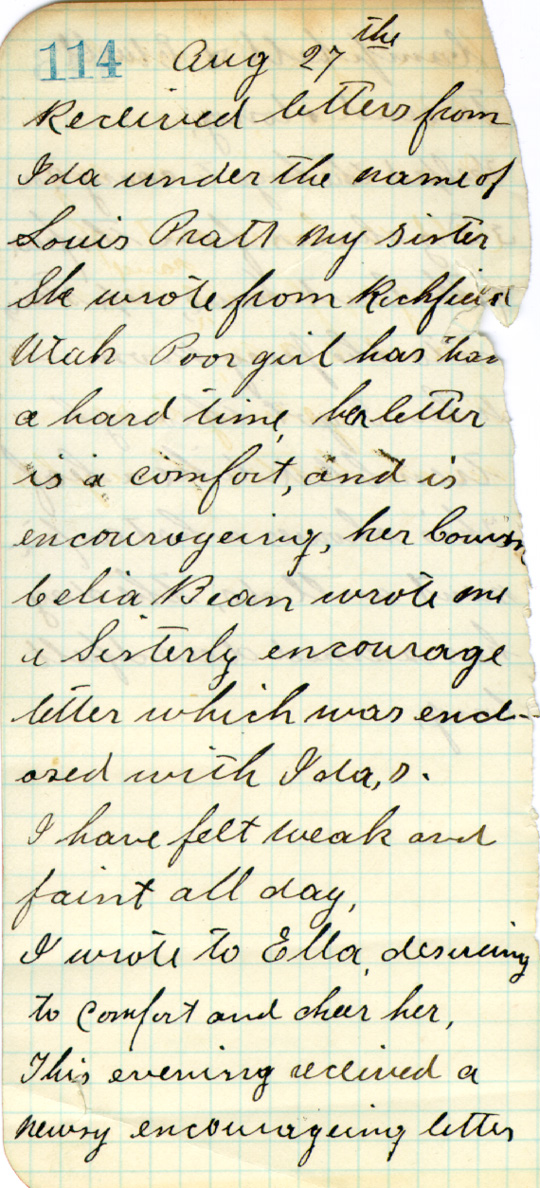 114 Aug 27 the
Received letters from
Ida under the name of
Louis Pratt my sister
She wrote from Richfield
Utah Poor girl has had
a hard time, her letter
is a comfort, and is
encourageing, her Cousin
Celia Bean wrote me
a Sisterly encourage
letter which was encl-
osed with Ida,s.
I have felt weak and
faint all day,
I wrote to Ella, desireing
to comfort and cheer her,
This evening received a
newsy encourageing letter